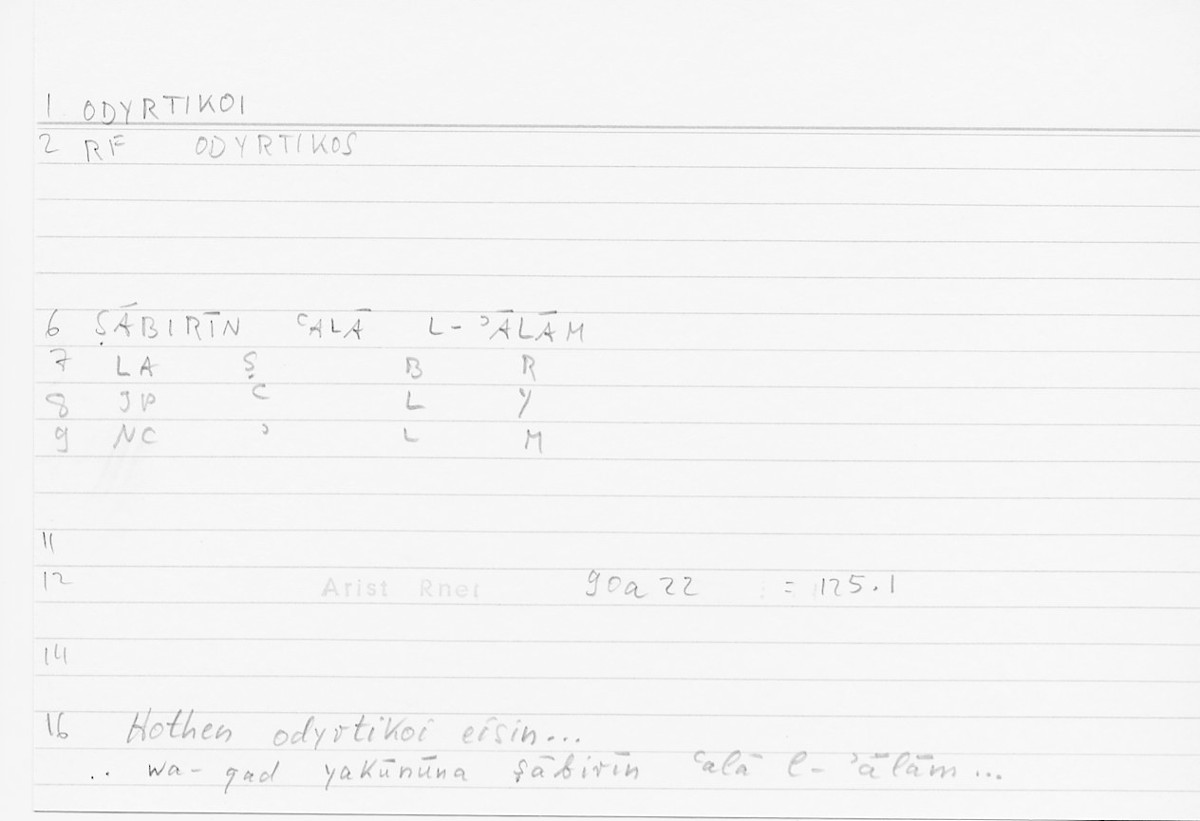 1 ODYRTIKOI
2 RF ODYRTIKOS
6 ṢĀBIRĪN ʿALĀ L-ʾĀLĀM
7 LA Ṣ B R
8 JP ʿ L Y
9 NC ʾ L M
11
12 Arist Rhet 90a22 = 125.1
14
16 Hothen odyrtikoi eisin...
.. wa-qad yakūnūna ṣābirīn ʿalā l-ʾālām...